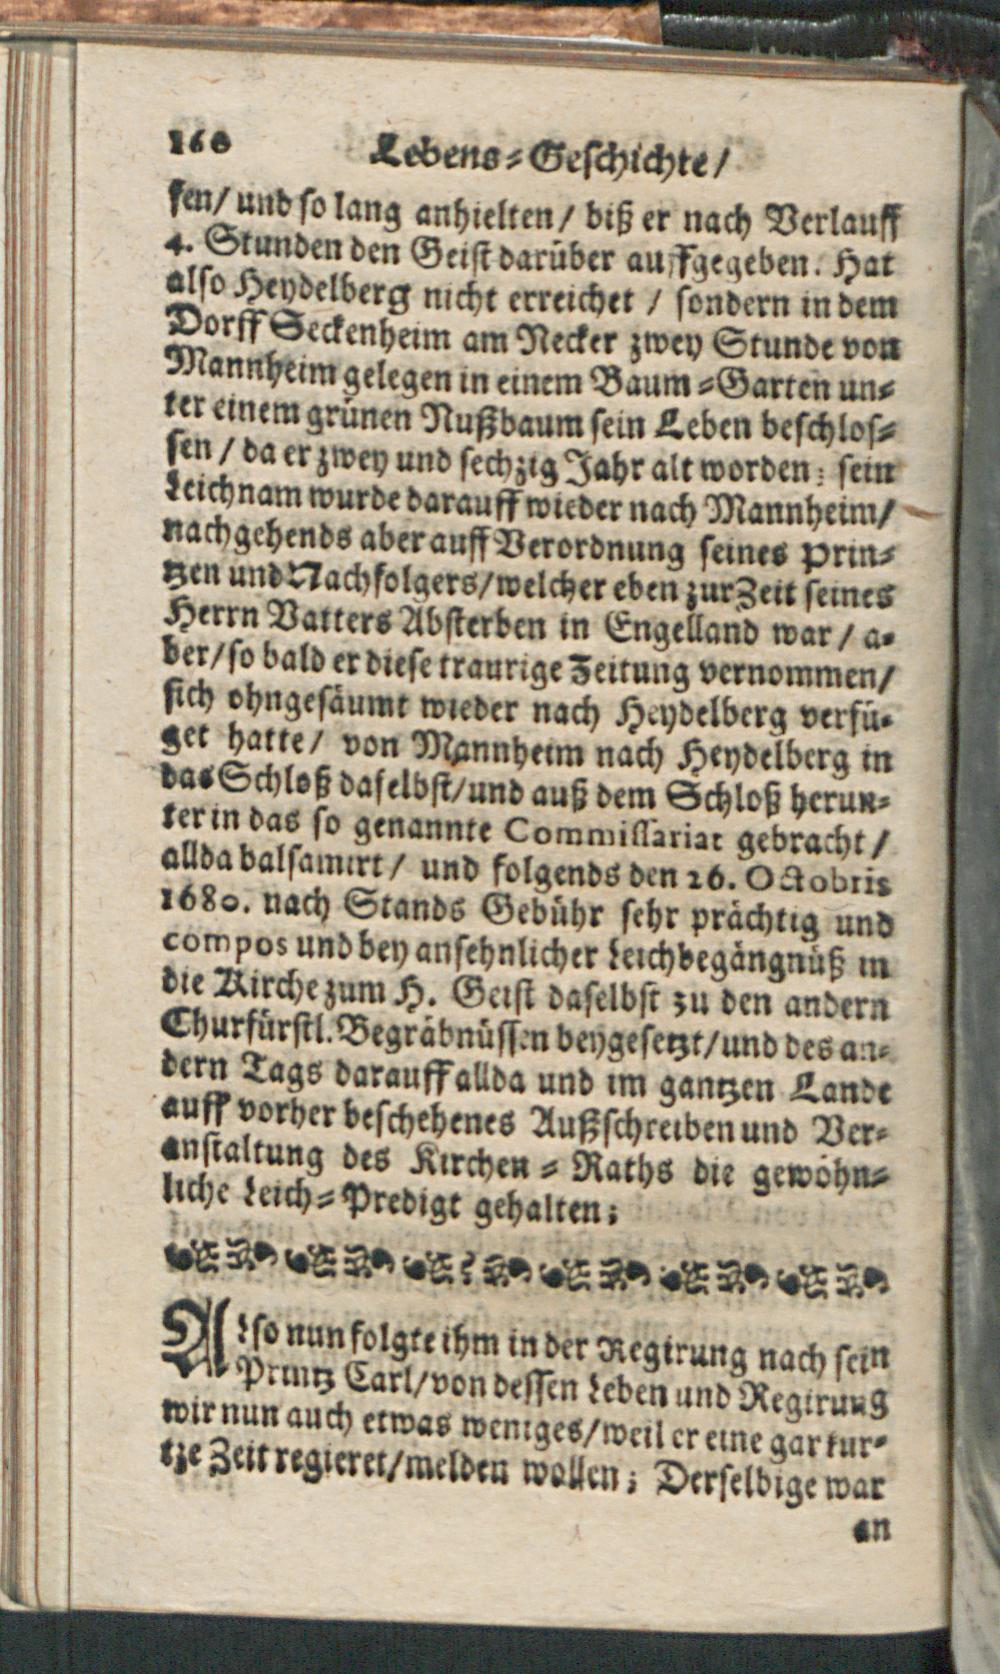 160 Lebens-Geschichte/
sen/ und so lang anhielten/ biß er nach Verlauff
4. Stunden den Geist darüber auffgegeben. Hat
also Heydelberg nicht erreichet / sondern in dem
Dorff Seckenheim am Necker zwey Stunde von
Mannheim gelegen in einem Baum-Garten un-
ter einem grünen Nußbaum sein Leben beschlos-
sen / da er zwey und sechzig Jahr alt worden; sein
Leichnam wurde darauff wieder nach Mannheim/
nachgehends aber auff Verordnung seines Prin-
tzen und Nachfolgers/welcher eben zur Zeit seines
Herrn Vatters Absterben in Engelland war / a-
ber/so bald er diese traurige Zeitung vernommen/
sich ohngesäumt wieder nach Heydelberg verfü-
get hatte/ von Mannheim nach Heydelberg in
das Schloß daselbst/und auß dem Schloß herun-
ter in das so genannte Commissariat gebracht /
allda balsamirt/ und folgends den 26. Octobris
1680. nach Stands Gebühr sehr prächtig und
compos und bey ansehnlicher Leichbegängnüß in
die Kirche zum H. Geist daselbst zu den andern
Churfürstl. Begräbnüssen beygesetzt/und des an-
dern Tags darauff allda und im gantzen Lande
auff vorher beschehenes Außschreiben und Ver-
anstaltung des Kirchen-Raths die gewöhn-
liche Leich-Predigt gehalten;
Also nun folgte ihm in der Regirung nach sein
Printz Carl/von dessen Leben und Regirung
wir nun auch etwas weniges/weil er eine gar kur-
tze Zeit regieret/melden wollen; Derselbige war
an